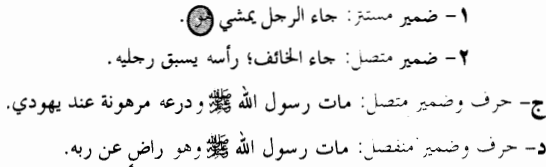 ١- ضمير مستتر: جاء الرجل يمشي هو.
٢- ضمير متصل: جاء الخائف؛ رأسه يسبق رجليه.
ج- حرف وضمير متصل: مات رسول الله ﷺ ودرعه مرهونة عند يهودي.
د- حرف وضمير منفصل: مات رسول الله ﷺ وهو راضٍ عن ربه.